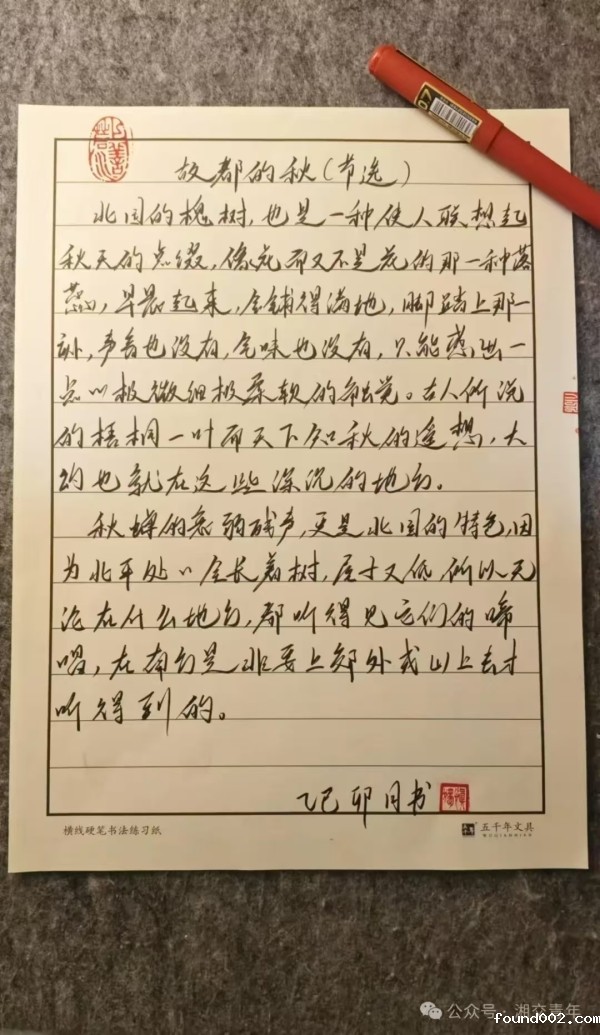 上善
故都的秋（节选）
北国的槐树，也是一种使人联想起
秋天的点缀，像花而又不是花的那一种落
蕊，早晨起来，会铺得满地，脚踏上那一
, 声音也没有，气味也没有，只能感出一
点〃极微细极柔软的触觉。古人所说
的梧桐一叶而天下知秋的遥想，大
约也就在这些深沉的地方。
秋蝉的衰弱残声，更是北国的特色，因
为北平处〃全长着树，屋子又低，所以无
论在什么地方，都听得见它们的啼
唱，在南方是非要上郊外或山上去才
听得到的。
乙巳卯月书
横线硬笔书法练习纸
五千年文具
WUQIANNIAN
07
公众号·湘交青年
found002.com